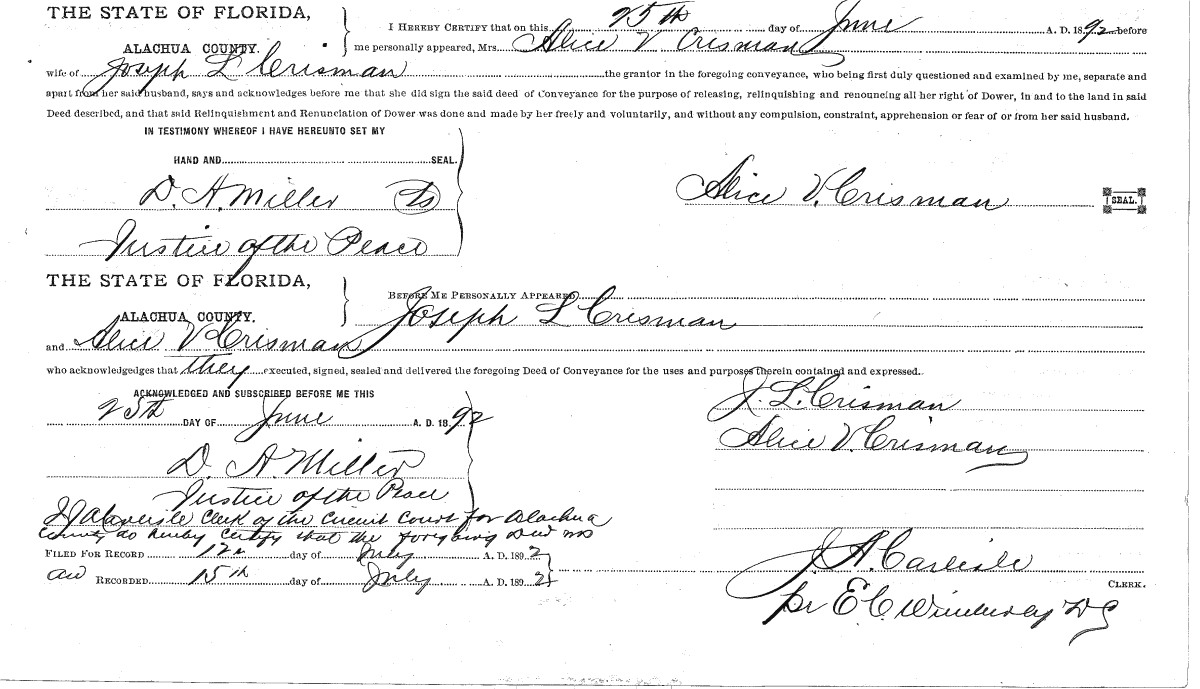 THE STATE OF FLORIDA,
ALACHUA COUNTY.
I HEREBY CERTIFY that on this 25th day of June A. D. 1892 before
me personally appeared, Mrs. Alice V Crisman
wife of Joseph L Crisman the grantor in the foregoing conveyance, who being first duly questioned and examined by me, separate and
apart from her said husband, says and acknowledges before me that she did sign the said deed of Conveyance for the purpose of releasing, relinquishing and renouncing all her right of Dower, in and to the land in said
Deed described, and that said Relinquishment and Renunciation of Dower was done and made by her freely and voluntarily, and without any compulsion, constraint, apprehension or fear of or from her said husband.
IN TESTIMONY WHEREOF I HAVE HEREUNTO SET MY
HAND AND SEAL.
D. A. Miller
Alice V. Crisman SEAL.
Justice of the Peace
THE STATE OF FLORIDA,
ALACHUA COUNTY.
BEFORE ME PERSONALLY APPEARED
Joseph L Crisman
and Alice V Crisman
who acknowledgedges that they executed, signed, sealed and delivered the foregoing Deed of Conveyance for the uses and purposes therein contained and expressed.
ACKNOWLEDGED AND SUBSCRIBED BEFORE ME THIS
25th DAY OF June A. D. 1892
J. L. Crisman
Alice V. Crisman
D. A. Miller
Justice of the Peace
I J A Carlisle Clerk of the Circuit Court for Alachua
County do hereby certify that the foregoing Deed was
FILED FOR RECORD 12 day of July A. D. 1892
RECORDED 15th day of July A. D. 1892
J. A. Carlisle
CLERK.
pr E C